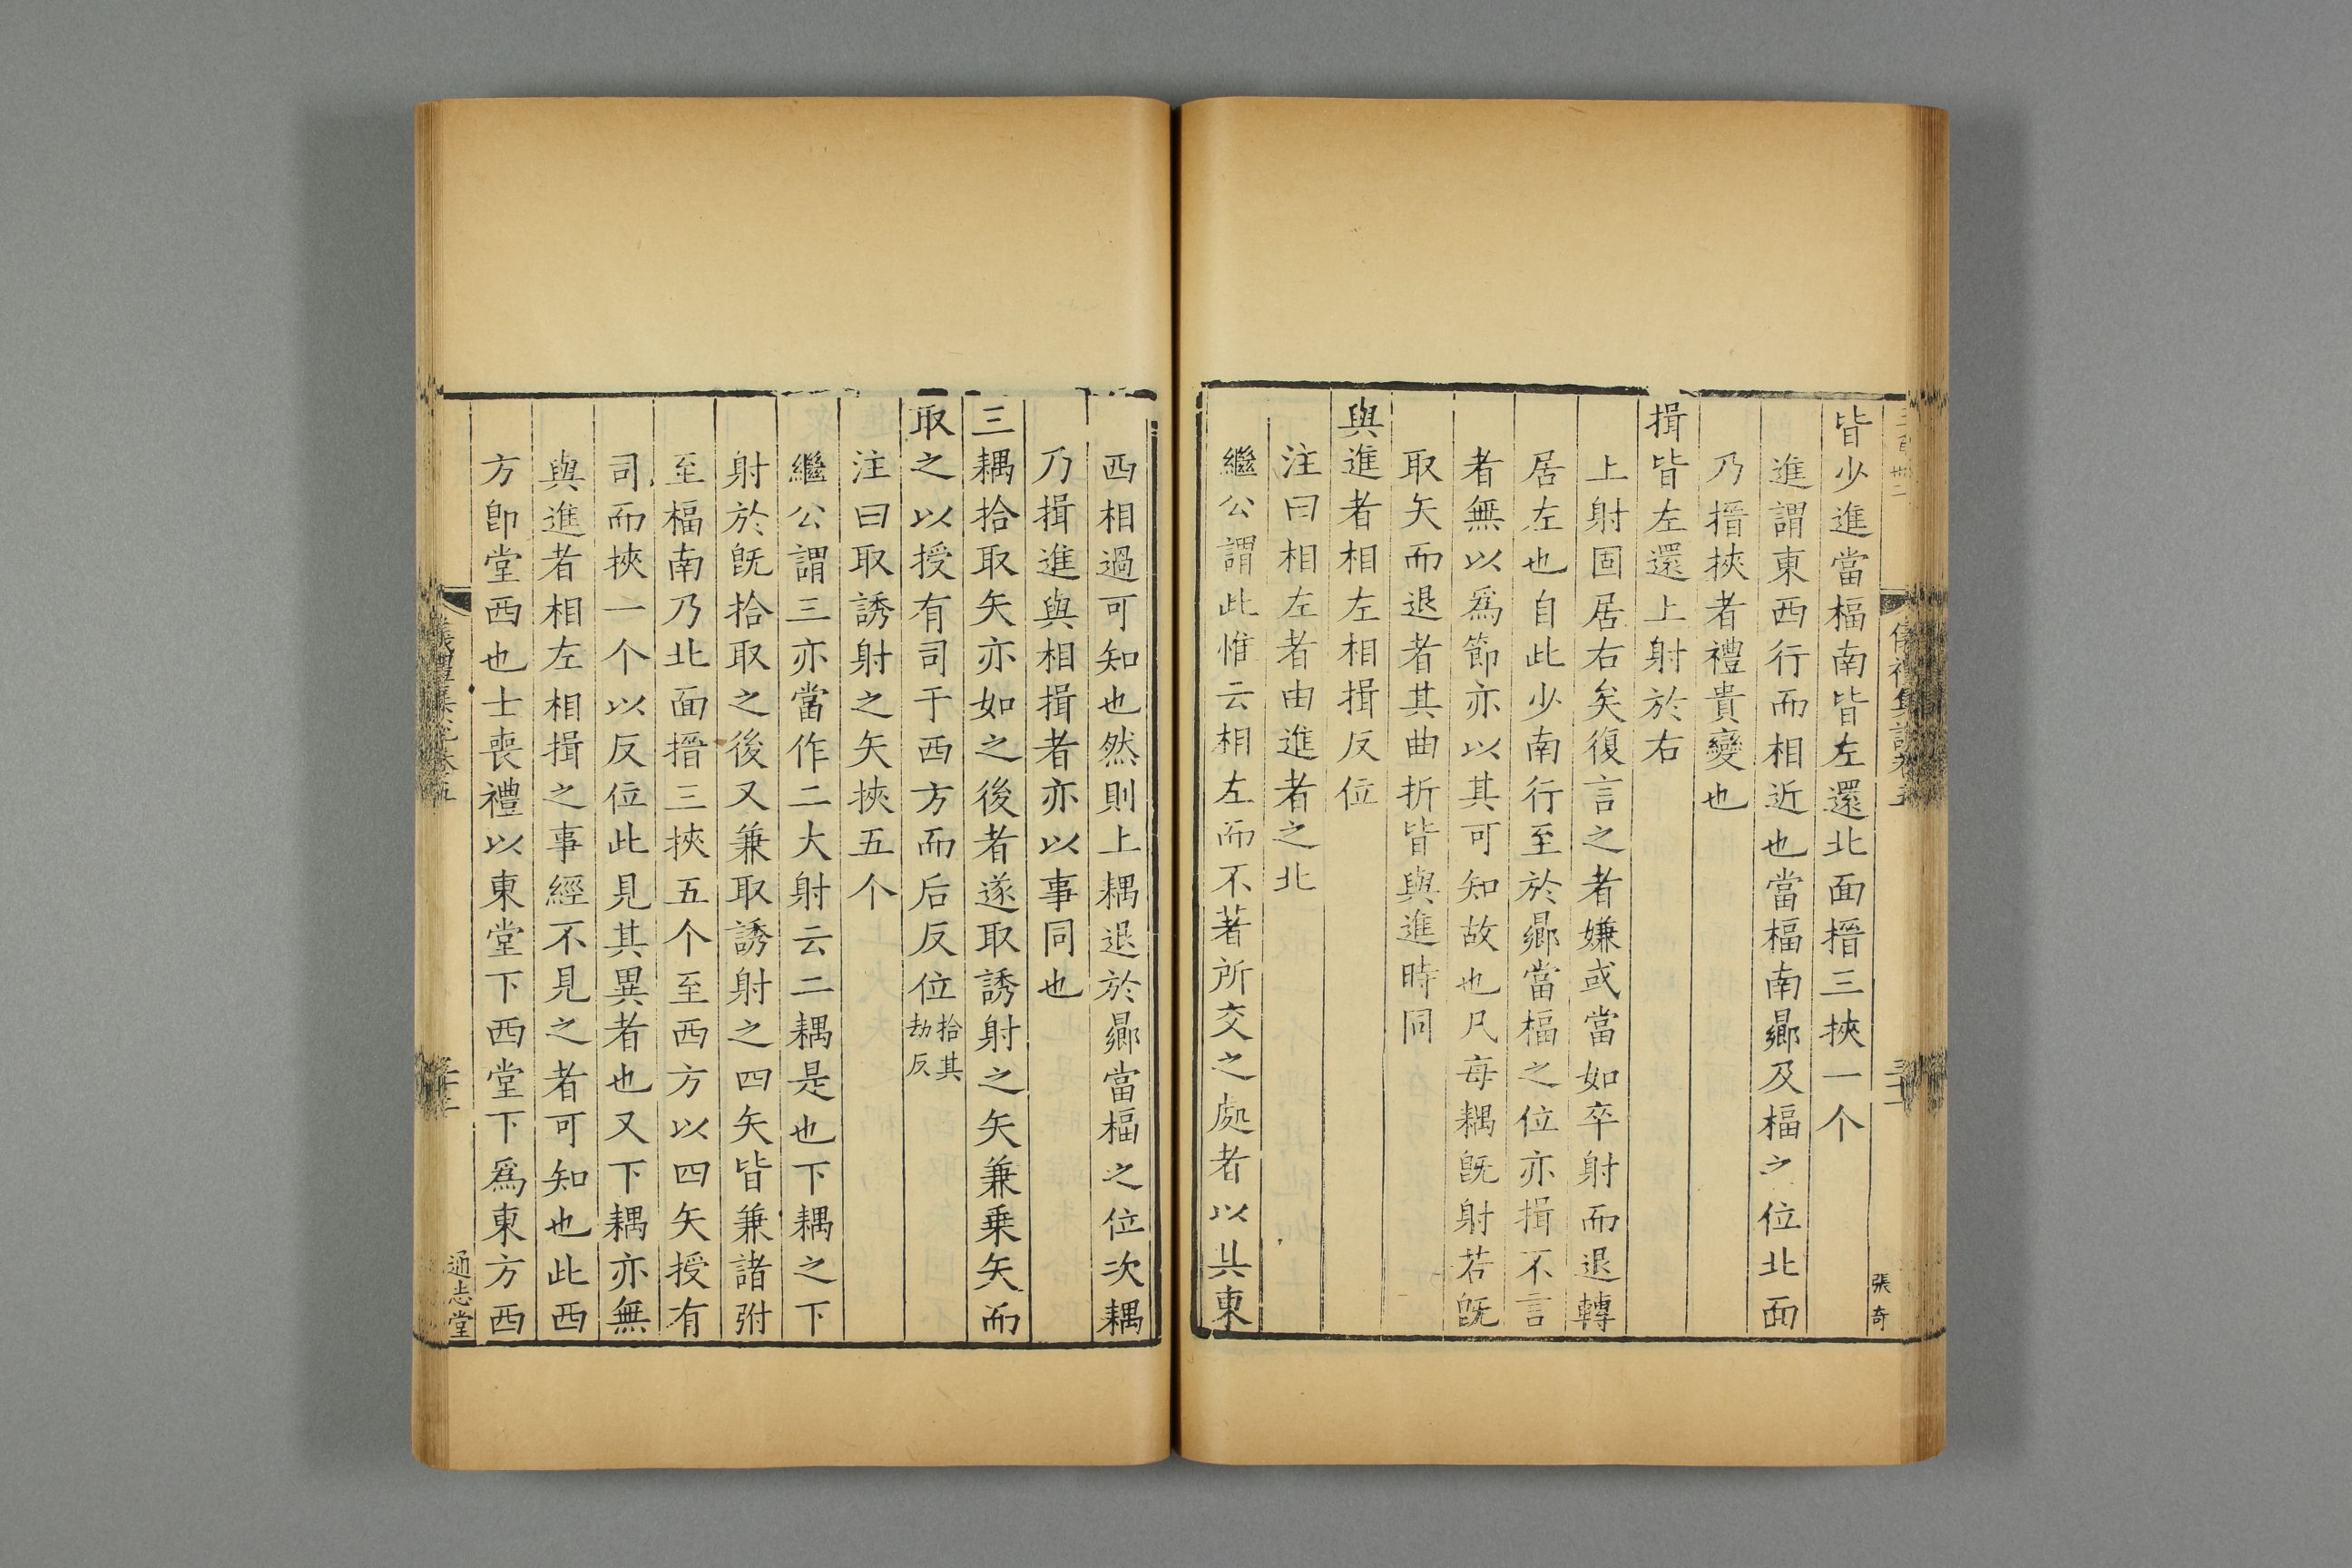 皆少進當楅南皆左還北面搢三挾一个
進謂東西行而相近也當楅南鄉及楅之位北面
乃搢挾者禮貴變也
揖皆左還上射於右
上射固居右矣復言之者嫌或當如卒射而退轉
居左也自此少南行至於鄉當楅之位亦揖不言
者無以爲節亦以其可知故也凡每耦既射若既
取矢而退者其曲折皆與進時同
與進者相左相揖反位
注曰相左者由進者之北
繼公謂此惟云相左而不著所交之處者以其東
張奇
西相過可知也然則上耦退於鄉當楅之位次耦
乃揖進與相揖者亦以事同也
三耦拾取矢亦如之後者遂取誘射之矢兼乗矢而
取之以授有司于西方而后反位拾其
劫反
注曰取誘射之矢挾五个
繼公謂三亦當作二大射云二耦是也下耦之下
射於旣拾取之後又兼取誘射之四矢皆兼諸弣
至楅南乃北面搢三挾五个至西方以四矢授有
司而挾一个以反位此見其異者也又下耦亦無
與進者相左相揖之事經不見之者可知也此西
方卽堂西也士喪禮以東堂下西堂下爲東方西
通志堂